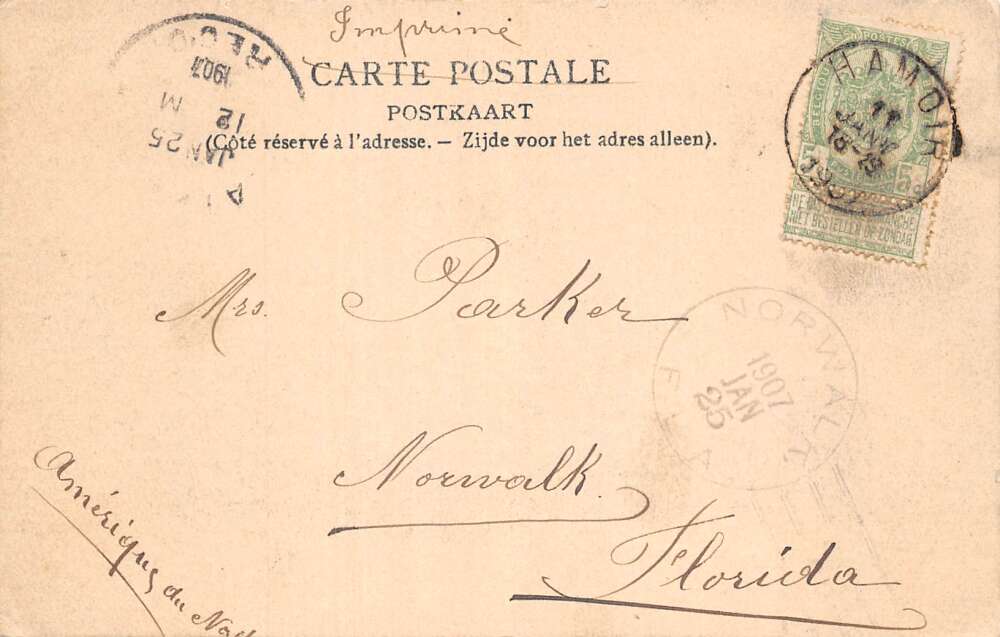 Imprimé
CARTE POSTALE
POSTKAART
(Côté réservé à l'adresse. – Zijde voor het adres alleen).
REC'D
1907
M
12
JAN 25
POSTES
BELGIQUE
5
NIET BESTELLEN OP ZONDAG
HAMOIR
11
JANV
1907
Mrs. Parker
Norwalk
Florida
Amérique du Nord
NORWALK
1907
JAN
25
FLA